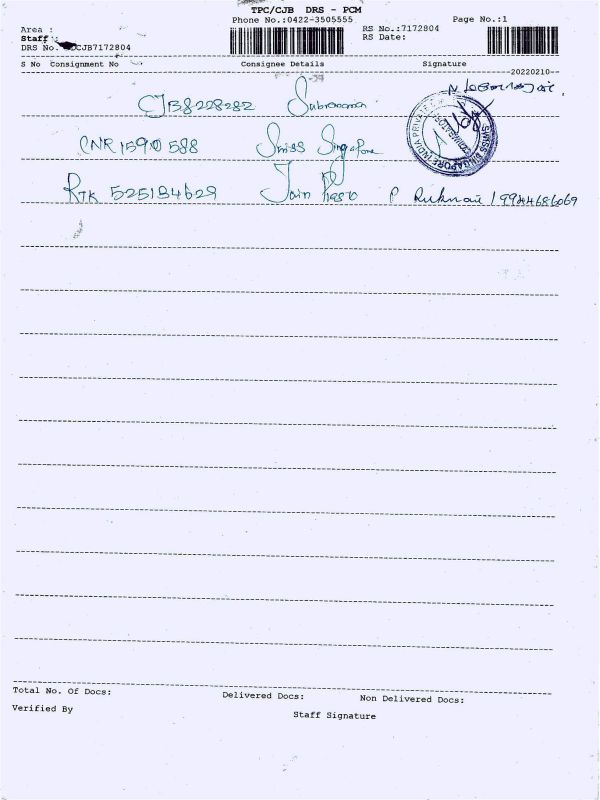 TPC/CJB DRS - PCM
Phone No.:0422-3505555
Page No.:1
Area :
RS No.:7172804
Staff :
RS Date:
DRS No. CJB7172804
S No Consignment No Consignee Details Signature
20220210
CJB8228282
CNR1590588 Swiss Singapore
SWISS SINGAPORE INDIA PRIVATE
COIMBATORE
RTK 525184629 Jain P 9944686069
Total No. Of Docs: Delivered Docs: Non Delivered Docs:
Verified By
Staff Signature